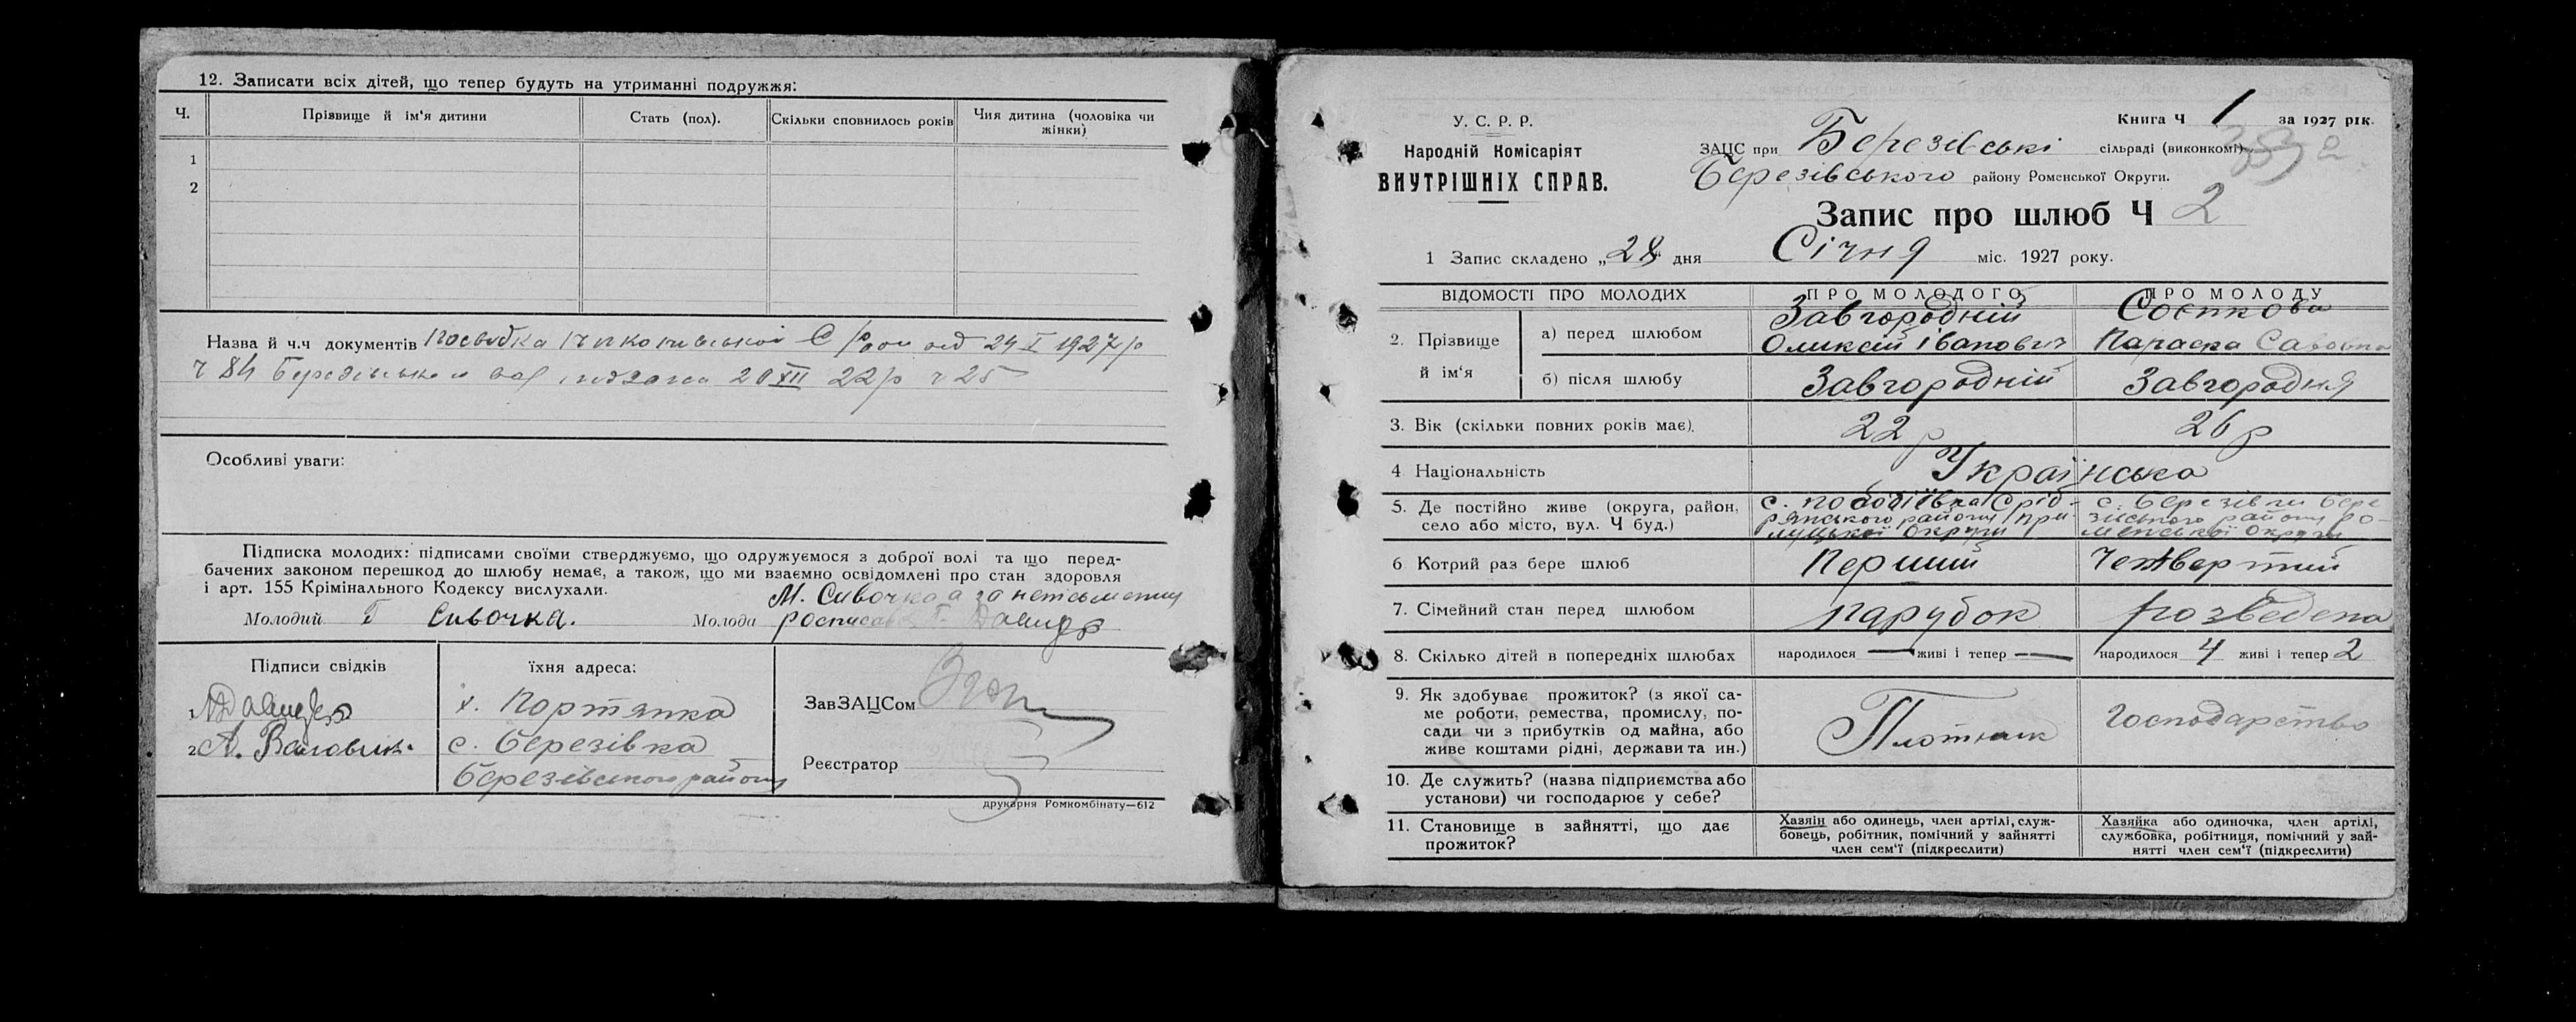 12. Записати всіх дітей, що тепер будуть на утриманні подружжя:
Ч. Прізвище й ім'я дитини Стать (пол). Скільки сповнилось років Чия дитина (чоловіка чи жінки)
1
2
Назва й ч.ч документів Посвідка од 24 I 1927 р
ч 84 20 XII 22 р ч 25
Особливі уваги:
Підписка молодих: підписами своїми стверджуємо, що одружуємося з доброї волі та що перед-
бачених законом перешкод до шлюбу немає, а також, що ми взаємно освідомлені про стан здоровля
і арт. 155 Крімінального Кодексу вислухали.
М. Сивочка а за неписьменну
Молодий Г Сивочка. Молода росписався
Підписи свідків їхня адреса:
1 х. Портянка ЗавЗАЦСом
2 А. с. Березівка
Березівського району Реєстратор
друкарня Ромкомбінату—612
У. С. Р. Р.
Народній Комісаріят
ВНУТРІШНІХ СПРАВ.
Книга Ч 1 за 1927 рік.
ЗАЦС при Березівські сільраді (виконкомі)
Березівського району Роменської Округи.
Запис про шлюб Ч 2
1 Запис складено „28" дня Січня міс. 1927 року.
ВІДОМОСТІ ПРО МОЛОДИХ ПРО МОЛОДОГО ПРО МОЛОДУ
2. Прізвище й ім'я а) перед шлюбом Завгородній Олексій Іванович Параска
б) після шлюбу Завгородній Завгородня
3. Вік (скільки повних років має). 22 р 26 р
4 Національність Українська
5. Де постійно живе (округа, район, с. Срібс. Березівки Бере
село або місто, вул. Ч буд.) рянського району При зівського району Ро
луцької Округи менської Округи
6 Котрий раз бере шлюб Перший Четвертий
7. Сімейний стан перед шлюбом парубок розведена
8. Скілько дітей в попередніх шлюбах народилося — живі і тепер — народилося 4 живі і тепер 2
9. Як здобуває прожиток? (з якої са-
ме роботи, ремества, промислу, по-
сади чи з прибутків од майна, або
живе коштами рідні, держави та ин.) Плотник Господарство
10. Де служить? (назва підприємства або
установи) чи господарює у себе?
11. Становище в зайнятті, що дає
прожиток?
Хазяїн або одинець, член артілі, служ-
бовець, робітник, помічний у зайнятті
член сем'ї (підкреслити)
Хазяйка або одиночка, член артілі,
службовка, робітниця, помічний у зай-
нятті член сем'ї (підкреслити)